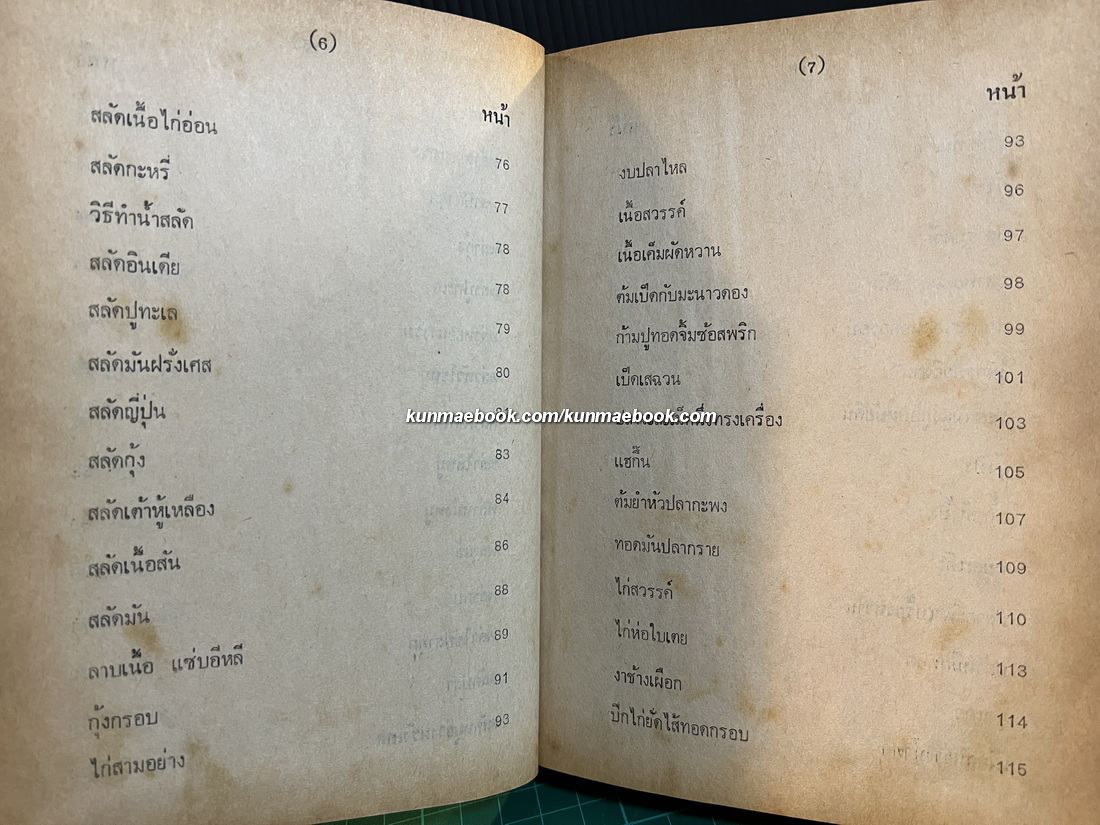 (6)
หน้า
สลัดเนื้อไก่อ่อน 76
สลัดกะหรี่ 77
วิธีทำน้ำสลัด 78
สลัดอินเดีย 78
สลัดปูทะเล 79
สลัดมันฝรั่งเศส 80
สลัดญี่ปุ่น
สลัดกุ้ง 83
สลัดเต้าหู้เหลือง 84
สลัดเนื้อสัน 86
สลัดมัน 88
ลาบเนื้อ แซ่บอีหลี 89
กุ้งกรอบ 91
ไก่สามอย่าง 93
(7)
หน้า
งบปลาไหล 93
เนื้อสวรรค์ 96
เนื้อเค็มผัดหวาน 97
ต้มเป็ดกับมะนาวดอง 98
ก้ามปูทอดจิ้มซ้อสพริก 99
เป็ดเสฉวน 101
ทรงเครื่อง 103
แฮกึ๊น 105
ต้มยำหัวปลากะพง 107
ทอดมันปลากราย 109
ไก่สวรรค์ 110
ไก่ห่อใบเตย 113
งาช้างเผือก 114
ปีกไก่ยัดไส้ทอดกรอบ 115
kunmaebook.com/kunmaebook.com